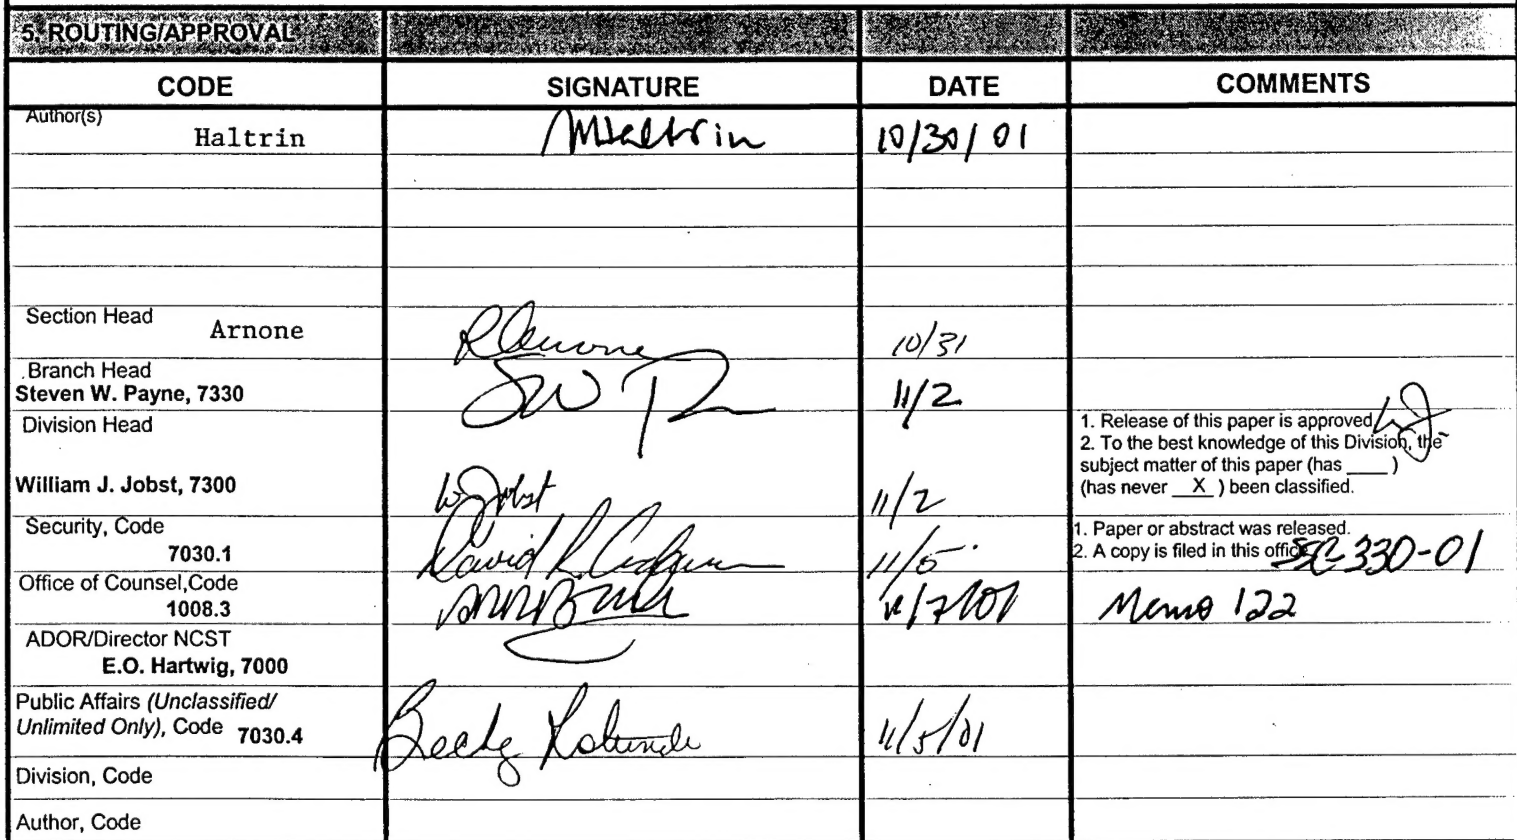 5. ROUTING/APPROVAL
CODE SIGNATURE DATE COMMENTS
Author(s)
Haltrin MHaltrin 10/30/01
Section Head
Arnone RArnone 10/31
Branch Head
Steven W. Payne, 7330 SW P 11/2
Division Head
1. Release of this paper is approved
2. To the best knowledge of this Division, the
subject matter of this paper (has ____ )
(has never X ) been classified.
William J. Jobst, 7300 W Jobst 11/2
Security, Code
7030.1 David R. 11/5
1. Paper or abstract was released.
2. A copy is filed in this office. 330-01
Office of Counsel,Code
1008.3 11/7/01 Memo 122
ADOR/Director NCST
E.O. Hartwig, 7000
Public Affairs (Unclassified/
Unlimited Only), Code 7030.4 Becky Rotundo 11/5/01
Division, Code
Author, Code